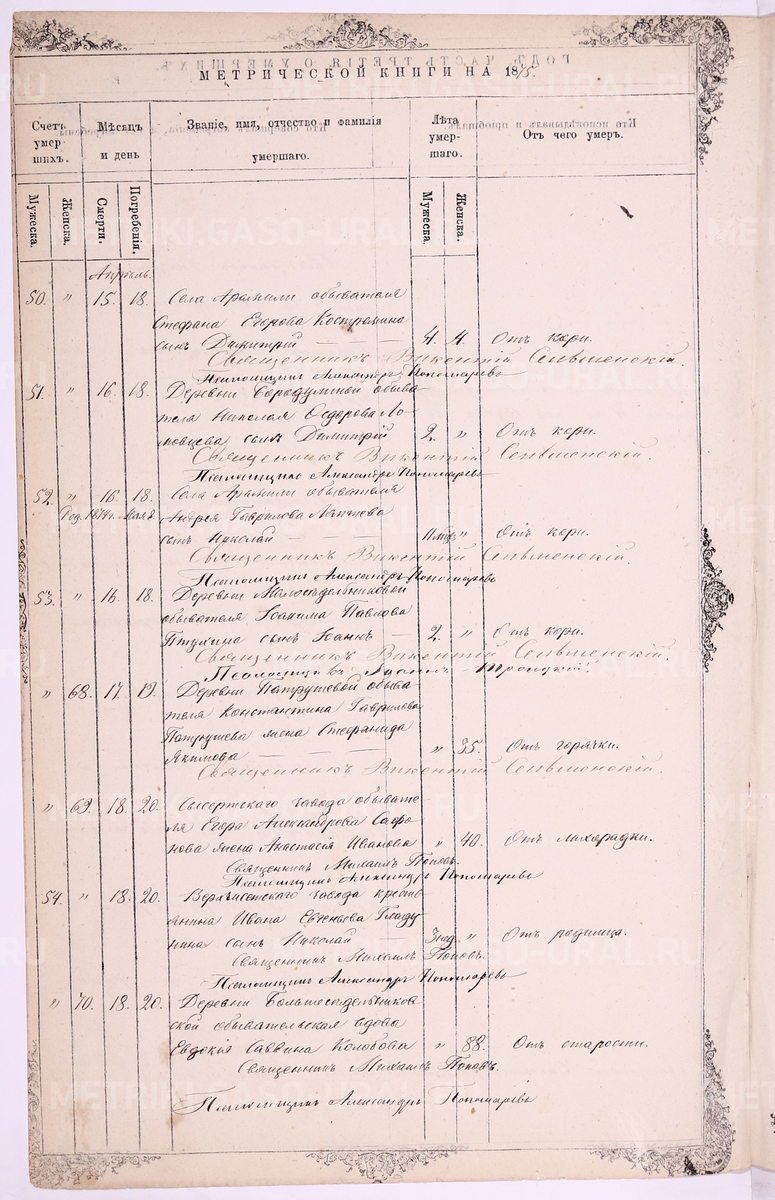 МЕТРИЧЕСКОЙ КНИГИ НА 1875.
Счетъ умер шихъ.
Мѣсяцъ и день
Званіе, имя, отчество и фамилія умершаго.
Лѣта умер- шаго.
Отъ чего умеръ.
Мужеска.
Женска.
Смерти.
Погребенія.
Мужеска.
Женска.
Апрѣль.
50. " 15. 18. Села Арамили обывателя
Стефана Егорова Костромина
сынъ Димитрій 4. Отъ кори.
Священникъ Викентій
Псаломщикъ Александръ Пономаревъ
51. " 16. 18. Деревни Бородулиной обыва
теля Николая Ѳедорова Ло
повцева сынъ Димитрій 2. " Отъ кори.
Священникъ Викентій
Псаломщикъ Александръ Пономаревъ
52. " 16. 18. Села Арамили обывателя
Род. 1874 г. Мая 2. Андрея Гаврилова Лаптева
сынъ Николай 11 мѣс. " Отъ кори.
Священникъ Викентій
Псаломщикъ Александръ Пономаревъ
53. " 16. 18. Деревни Малосидѣльниковой
обывателя Іоакима Павлова
Птухина сынъ Іоаннъ 2. " Отъ кори.
Священникъ Викентій
Псаломщикъ Іоаннъ Троицкій.
" 68. 17. 19. Деревни Патрушевой обыва
теля Константина Гаврилова
Патрушева жена Стефанида
Якимова " 35. Отъ горячки.
Священникъ Викентій
" 69. 18. 20. Сысертскаго завода обывате
ля Егора Александрова Сафо
нова жена Анастасія Иванова " 40. Отъ лихорадки.
Священникъ Михаилъ Поповъ.
Псаломщикъ Александръ Пономаревъ
54. " 18. 20. Верхъисетскаго завода крестъ
янина Ивана Евгеньева Гладу
нина сынъ Николай 3 нед. " Отъ родимца.
Священникъ Михаилъ Поповъ.
Псаломщикъ Александръ Пономаревъ
" 70. 18. 20. Деревни Большесидельников
ской обывательская вдова
Евдокія Саввина Колобова " 88. Отъ старости.
Священникъ Михаилъ Поповъ.
Псаломщикъ Александръ Пономаревъ